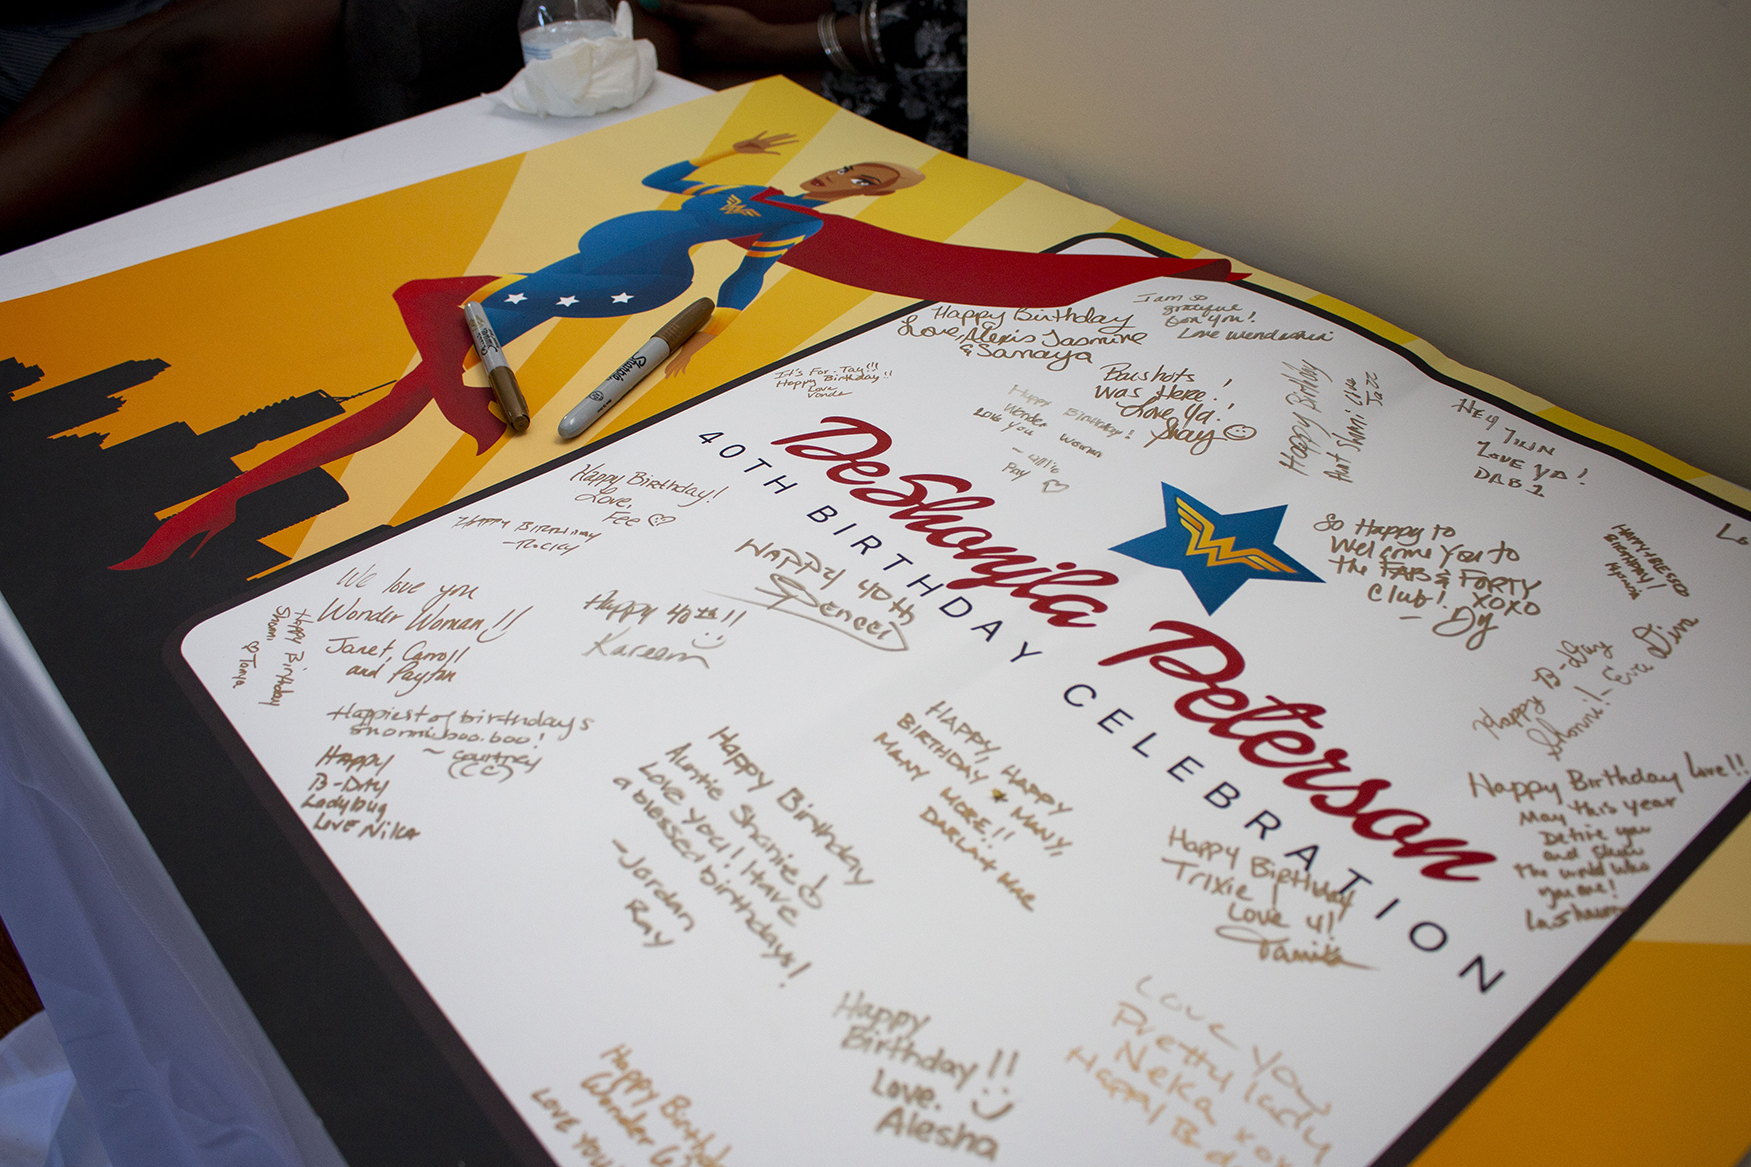 Happy Birthday
Love, Alexis Jasmine
& Samaya
I am so
grateful
for you!
It's For Tay!!!
Happy Birthday!!
Love
Vonda
Boushots
Was Here!
Love Ya!
Shay
Happy Birthday!
Wonder Woman
2016 you
Ray
Happy Birthday
Aunt Shawni Love
Jazz
HEY TWIN
LOVE YA!
DAB 1
DeShonjla Peterson
40TH BIRTHDAY CELEBRATION
Happy Birthday!
Love,
Fee
HAPPY BIRTHDAY
-ROCKY
HAPPY 40th
Spencer
So Happy to
Welcome You to
the FAB & FORTY
Club! XOXO
- Dy
HAPPY & BLESSED
BIRTHDAY!
We love you
Wonder Woman!!
Janet, Carroll
and Payton
Happy 40th!!
Kareem
Happy Birthday
Shawni
Tanya
Happy B-Day
Shonni! - Eva Diva
Happiest of birthdays
Shonni.boo.boo!
~ Courtney
(CC)
Happy
B-Day
Ladybug
Love Nika
Happy Birthday
Auntie Shanie
Love you! Have
a blessed birthday!
-Jordan
Ray
HAPPY, HAPPY
BIRTHDAY & MANY,
MANY MORE!!
Happy Birthday
Trixie
Love u!
Tamika
Happy Birthday Love!!!
May this year
Define you
and show
The world who
you are!
LaShawn
Happy
Birthday!!
Love,
Alesha
Love You
Pretty Lady
Neka xo
Happy B-d
Happy Birthd
Wonder
LOVE YOU
Sharpie